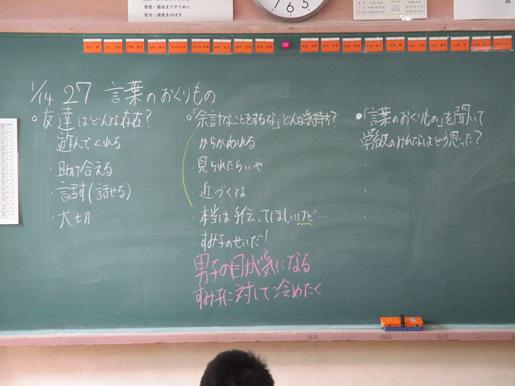 165
1/14 27 言葉のおくりもの
•友達はどんな存在?
・遊んでくれる
・助け合える
・話す(話せる)
・大切
•「余計なことをするな」どんな気持ち?
・からかわれる
・見られたらいや
・近づくな
・本当は手伝ってほしいけど…
・すみ子のせいだ!
男子の目が気になる
すみ子に対して冷めたく
•「言葉のおくりもの」を聞いて
学級のみんなはどう思った?